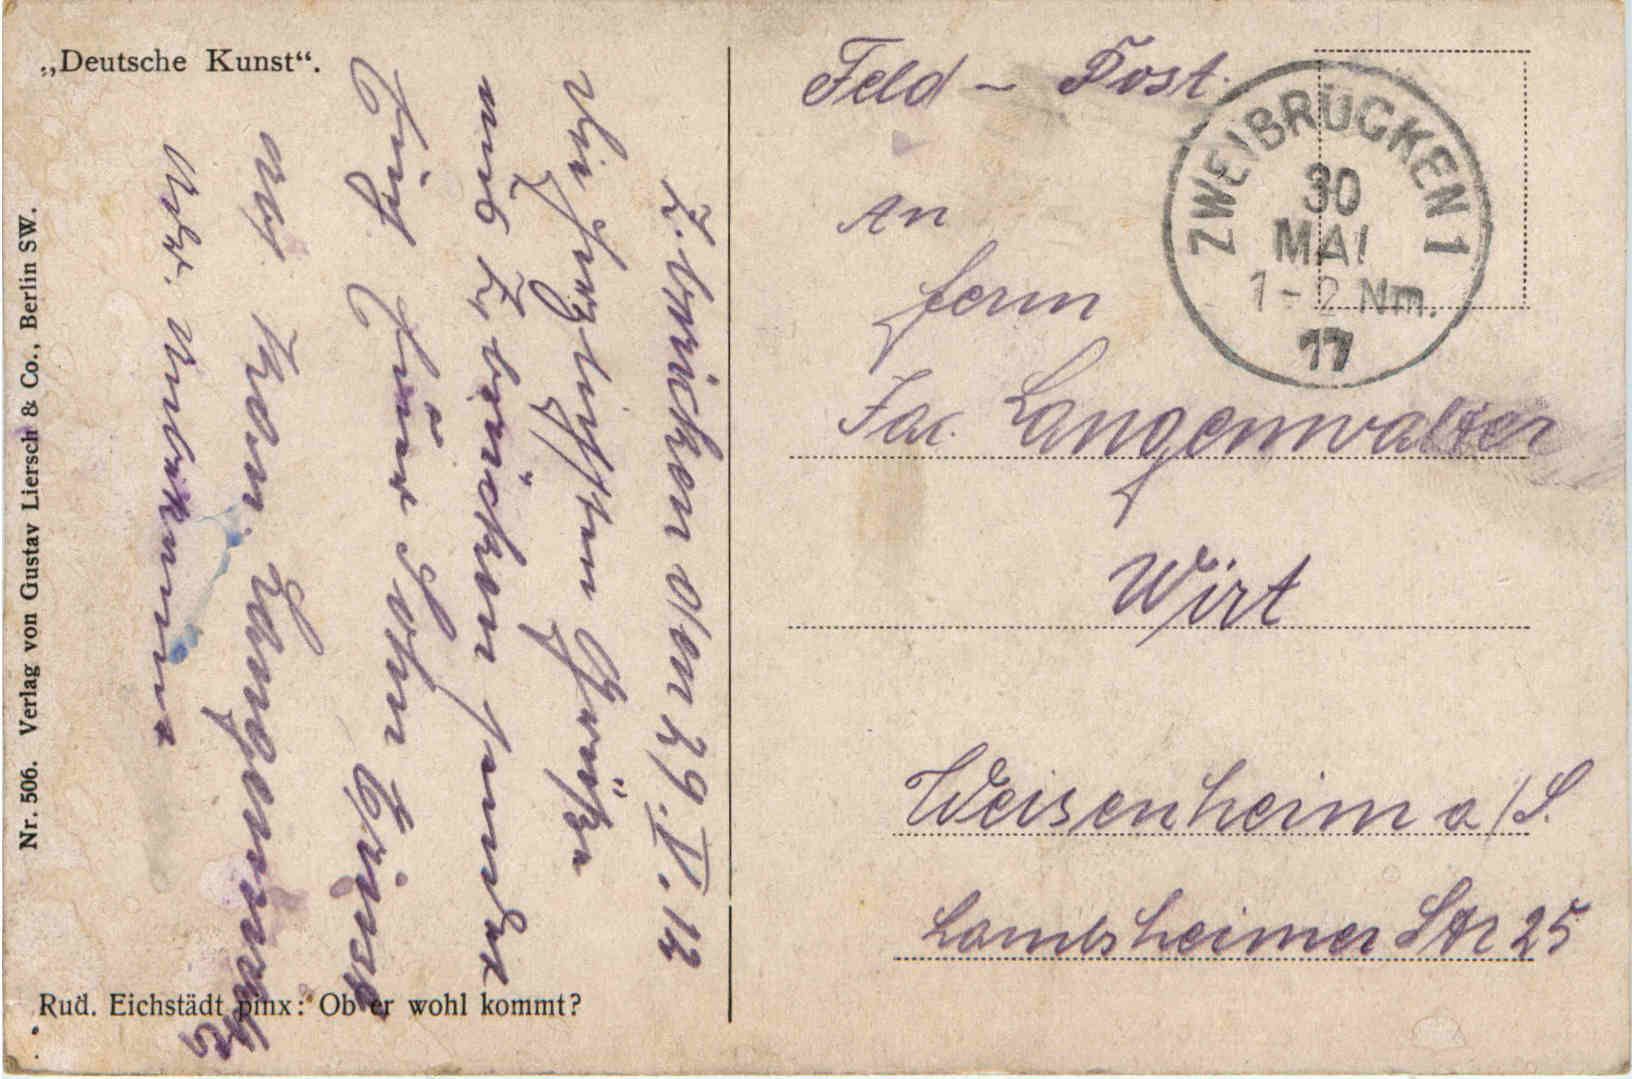 „Deutsche Kunst“.
Z.brücken den 29.V.17
Die herzlichsten Grüße
aus Zweibrücken sendet
Euch Euer Sohn
Langenwalter
Nr. 506. Verlag von Gustav Liersch & Co., Berlin SW.
Rud. Eichstädt pinx: Ob er wohl kommt?
Feld - Post.
ZWEIBRÜCKEN 1
30
MAI
1-2 Nm.
17
An
Herrn
Jac. Langenwalter
Wirt
Weisenheim a/S.
Lambsheimer Str 25